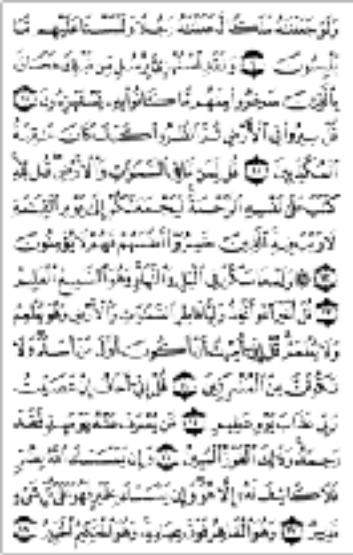 وَلَوْ جَعَلْنَٰهُ مَلَكًا لَّجَعَلْنَٰهُ رَجُلًا وَلَلَبَسْنَا عَلَيْهِم مَّا
يَلْبِسُونَ ٩ وَلَقَدِ ٱسْتُهْزِئَ بِرُسُلٍ مِّن قَبْلِكَ فَحَاقَ
بِٱلَّذِينَ سَخِرُوا۟ مِنْهُم مَّا كَانُوا۟ بِهِۦ يَسْتَهْزِءُونَ ١٠
قُلْ سِيرُوا۟ فِى ٱلْأَرْضِ ثُمَّ ٱنظُرُوا۟ كَيْفَ كَانَ عَٰقِبَةُ
ٱلْمُكَذِّبِينَ ١١ قُل لِّمَن مَّا فِى ٱلسَّمَٰوَٰتِ وَٱلْأَرْضِ قُل لِّلَّهِ
كَتَبَ عَلَىٰ نَفْسِهِ ٱلرَّحْمَةَ لَيَجْمَعَنَّكُمْ إِلَىٰ يَوْمِ ٱلْقِيَٰمَةِ
لَا رَيْبَ فِيهِ ٱلَّذِينَ خَسِرُوٓا۟ أَنفُسَهُمْ فَهُمْ لَا يُؤْمِنُونَ
١٢ ۞ وَلَهُۥ مَا سَكَنَ فِى ٱلَّيْلِ وَٱلنَّهَارِ وَهُوَ ٱلسَّمِيعُ ٱلْعَلِيمُ
١٣ قُلْ أَغَيْرَ ٱللَّهِ أَتَّخِذُ وَلِيًّا فَاطِرِ ٱلسَّمَٰوَٰتِ وَٱلْأَرْضِ وَهُوَ يُطْعِمُ
وَلَا يُطْعَمُ قُلْ إِنِّىٓ أُمِرْتُ أَنْ أَكُونَ أَوَّلَ مَنْ أَسْلَمَ وَلَا
تَكُونَنَّ مِنَ ٱلْمُشْرِكِينَ ١٤ قُلْ إِنِّىٓ أَخَافُ إِنْ عَصَيْتُ
رَبِّى عَذَابَ يَوْمٍ عَظِيمٍ ١٥ مَّن يُصْرَفْ عَنْهُ يَوْمَئِذٍ فَقَدْ
رَحِمَهُۥ وَذَٰلِكَ ٱلْفَوْزُ ٱلْمُبِينُ ١٦ وَإِن يَمْسَسْكَ ٱللَّهُ بِضُرٍّ
فَلَا كَاشِفَ لَهُۥٓ إِلَّا هُوَ وَإِن يَمْسَسْكَ بِخَيْرٍ فَهُوَ عَلَىٰ كُلِّ شَىْءٍ
قَدِيرٌ ١٧ وَهُوَ ٱلْقَاهِرُ فَوْقَ عِبَادِهِۦ وَهُوَ ٱلْحَكِيمُ ٱلْخَبِيرُ ١٨